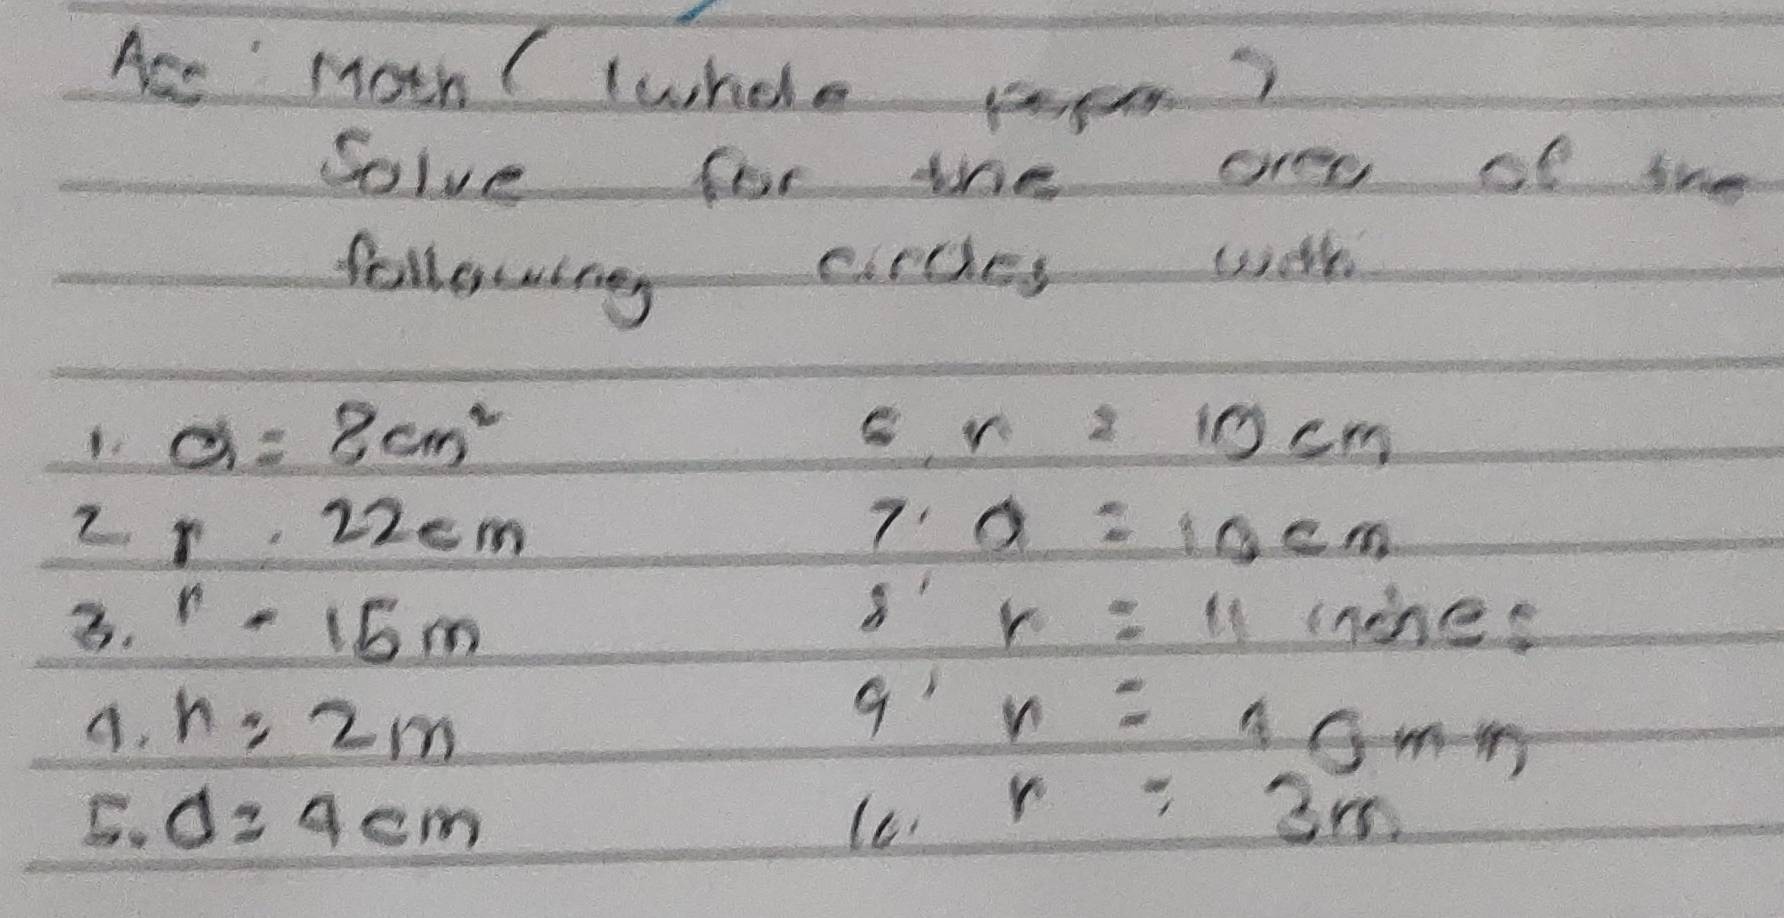 Ass: Math ( 1 whole paper )
Solve for the area of the
following circles with
1. d = 8cm²
2. r = 22cm
3. r = 15m
4. r = 2m
5. d = 4cm
6. r = 10cm
7. d = 10cm
8. r = 11 inches
9. r = mm
10. r = 3m